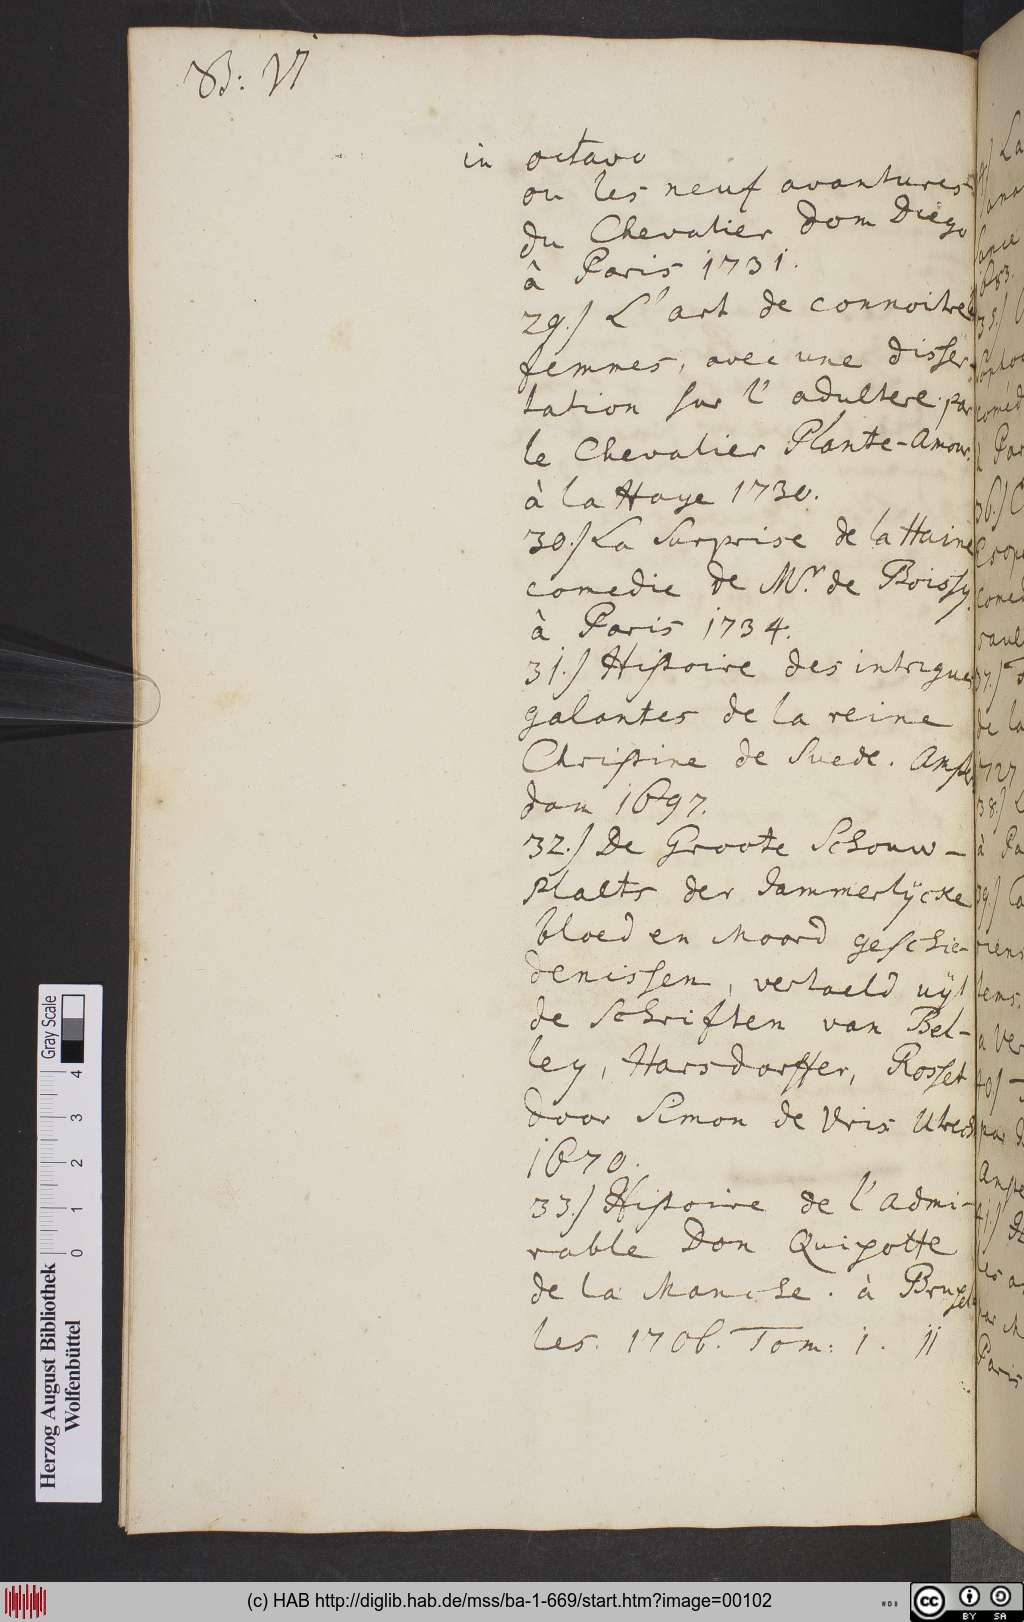 B: VI
in octavo
ou les neuf avantures
du Chevalier Dom Diego
à Paris 1731.
29.) L'art de connoitre
femmes, avec une disser-
tation sur l'adultere par
le Chevalier Plante-Amour.
à la Haye 1730.
30.) La Surprise de la Haine
comedie de Mr. de Boissy.
à Paris 1734.
31.) Histoire des intrigues
galantes de la reine
Christine de Suede. Amster
dam 1697.
32.) De Groote Schouw-
Plaets der Jammerlÿcke
bloed en Moord geschie-
denissen, vertaeld uÿt
de Schriften van Bel-
ley, Harsdorffer, Rosset
door Simon de Vris Utrecht
1670.
33.) Histoire de l'admi-
rable Don Quixotte
de la Manche. à Bruxel
les. 1706. Tom: i. ii
Herzog August Bibliothek
Wolfenbüttel
0 1 2 3 4
Gray Scale
(c) HAB http://diglib.hab.de/mss/ba-1-669/start.htm?image=00102
cc BY SA